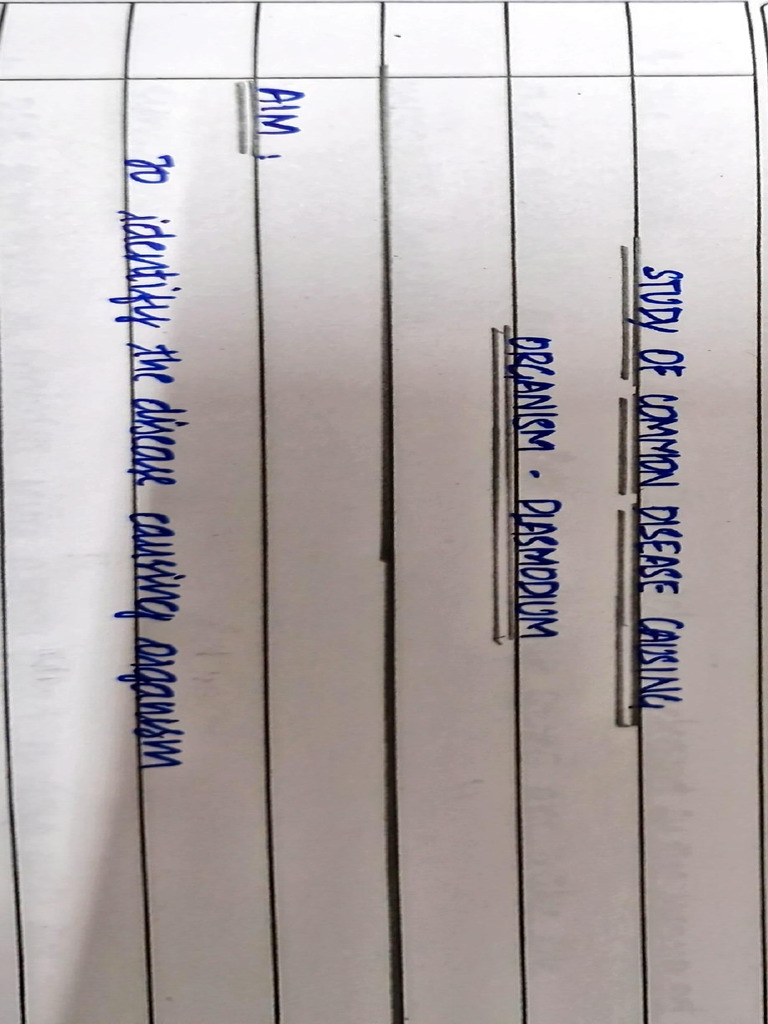 STUDY OF COMMON DISEASE CAUSING
ORGANISM - PLASMODIUM
AIM :
To identify the disease causing organism